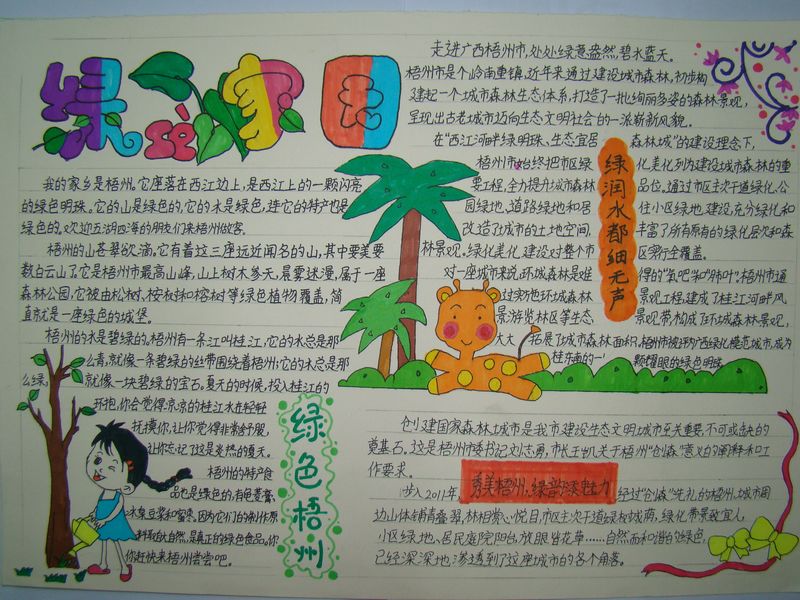 绿色家园
我的家乡是梧州。它座落在西江边上，是西江上的一颗闪亮
的绿色明珠。它的山是绿色的，它的水是绿色，连它的特产也是
绿色的。欢迎五湖四海的朋友们来梧州做客。
梧州的山苍翠欲滴，它有着这三座远近闻名的山，其中要美要
数白云山了，它是梧州市最高山峰，山上树木参天，晨雾迷漫，属于一座
森林公园，它被由松树、桉树和榕树等绿色植物覆盖，简
直就是一座绿色的城堡。
梧州的水是碧绿的，梧州有一条江叫桂江，它的水总是那
么清，就像一条碧绿的丝带围绕着梧州；它的水总是那
么绿，就像一块碧绿的宝石。夏天的时候，投入桂江的
环抱，你会觉得凉凉的桂江水在轻轻
抚摸你，让你觉得非常舒服，
让你忘记了这是炎热的夏天。
梧州的特产食
品也是绿色的，有龟苓膏、
冰泉豆浆和蜜枣，因为它们的制作原
料取自大自然，是真正的绿色食品。你
你赶快来梧州尝尝吧。
绿色梧州
走进广西梧州市，处处绿意盎然，碧水蓝天。
梧州市是个岭南重镇，近年来通过建设城市森林，初步构
建起一个城市森林生态体系，打造了一批绚丽多姿的森林景观，
呈现出古老城市迈向生态文明社会的一派崭新风貌。
在“西江河畔绿明珠、生态宜居森林城”的建设理念下，
梧州市始终把市区绿化美化列为建设城市森林的重
要工程，全力提升城市森林品位，通过市区主次干道绿化、公
园绿地、道路绿地和居住小区绿地建设，充分绿化和
改造了城市的土地空间，丰富了所有原有的绿化层次和森
林景观。绿化美化，建设对整个市区实行全覆盖。
对一座城市来说，环城森林是难得的“氧吧”和“肺叶”。梧州市通
过实施环城森林景观工程，建成了桂江河畔风
景游览林区等生态景观带，构成了环城森林景观，
大大拓展了城市森林面积，梧州市被评为广西绿化模范城市，成为
桂东南的一颗耀眼的绿色明珠。
绿润水都细无声
创建国家森林城市是我市建设生态文明城市至关重要、不可或缺的
奠基石。这是梧州市委书记刘志勇，市长王凯关于梧州“创森”意义的阐释和工
作要求。
步入2011年，秀美梧州，绿韵添魅力 经过“创森”洗礼的梧州，城市周
边山体铺青叠翠，林相赏心悦目，市区主次干道绿树成荫，绿化带景致宜人，
小区绿地、居民庭院阳台，放眼皆花草……自然而和谐的绿色，
已经深深地渗透到了这座城市的各个角落。